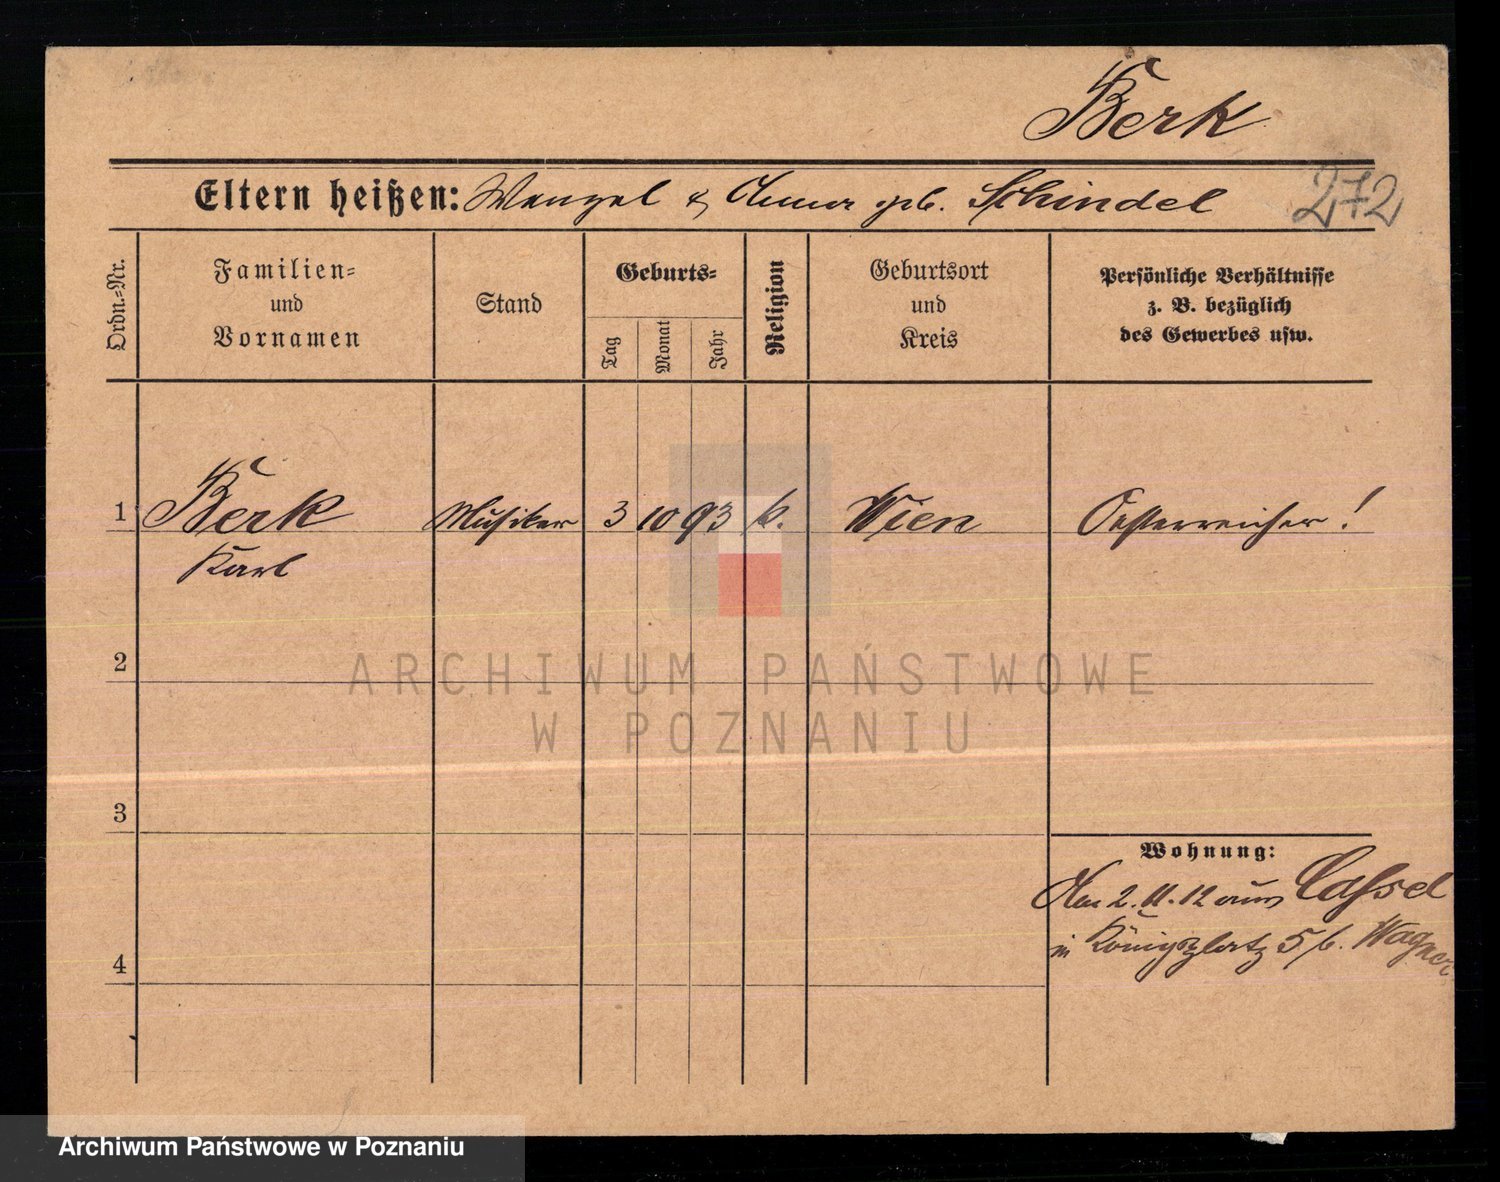 Berk
Eltern heißen: Wenzel & Anna geb. Schindel
272
Ordn.-Nr.
Familien-
und
Vornamen
Stand
Geburts-
Tag
Monat
Jahr
Religion
Geburtsort
und
Kreis
Persönliche Verhältnisse
z. B. bezüglich
des Gewerbes usw.
1 Berk Musiker 3 10 93 k. Wien Oesterreicher!
Karl
2
ARCHIWUM PAŃSTWOWE
W POZNANIU
3
Wohnung:
Am 2.11.12 aus Cassel
in Königsplatz 5 b. Wagner
4
Archiwum Państwowe w Poznaniu